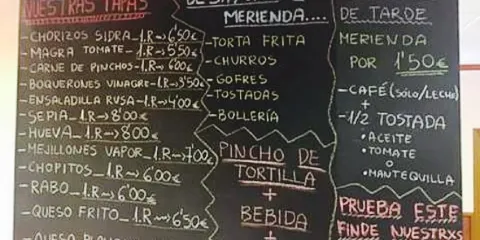 NUESTRAS TAPAS
-CHORIZOS SIDRA-1.R→6'50€
-MAGRA TOMATE-1.R→5'50€
-CARNE DE PINCHOS-1.R→6'00€
-BOQUERONES VINAGRE-1.R→3'50€
-ENSALADILLA RUSA-1.R→4'00€
-SEPIA-1.R→8'00€
-HUEVA-1.R→8'00€
-MEJILLONES VAPOR-1.R→7'00€
-CHOPITOS-1.R→6'00€
-RABO-1.R→6'00€
-QUESO FRITO-1.R→6'50€
-QUESO
MERIENDA....
-TORTA FRITA
-CHURROS
-GOFRES
-TOSTADAS
-BOLLERÍA
PINCHO DE
TORTILLA
+
BEBIDA
+
DE TARDE
MERIENDA
POR 1'50€
-CAFÉ (SÓLO/LECHE)
+
-1/2 TOSTADA
•ACEITE
•TOMATE
O
•MANTEQUILLA
PRUEBA ESTE
FINDE NUESTRXS